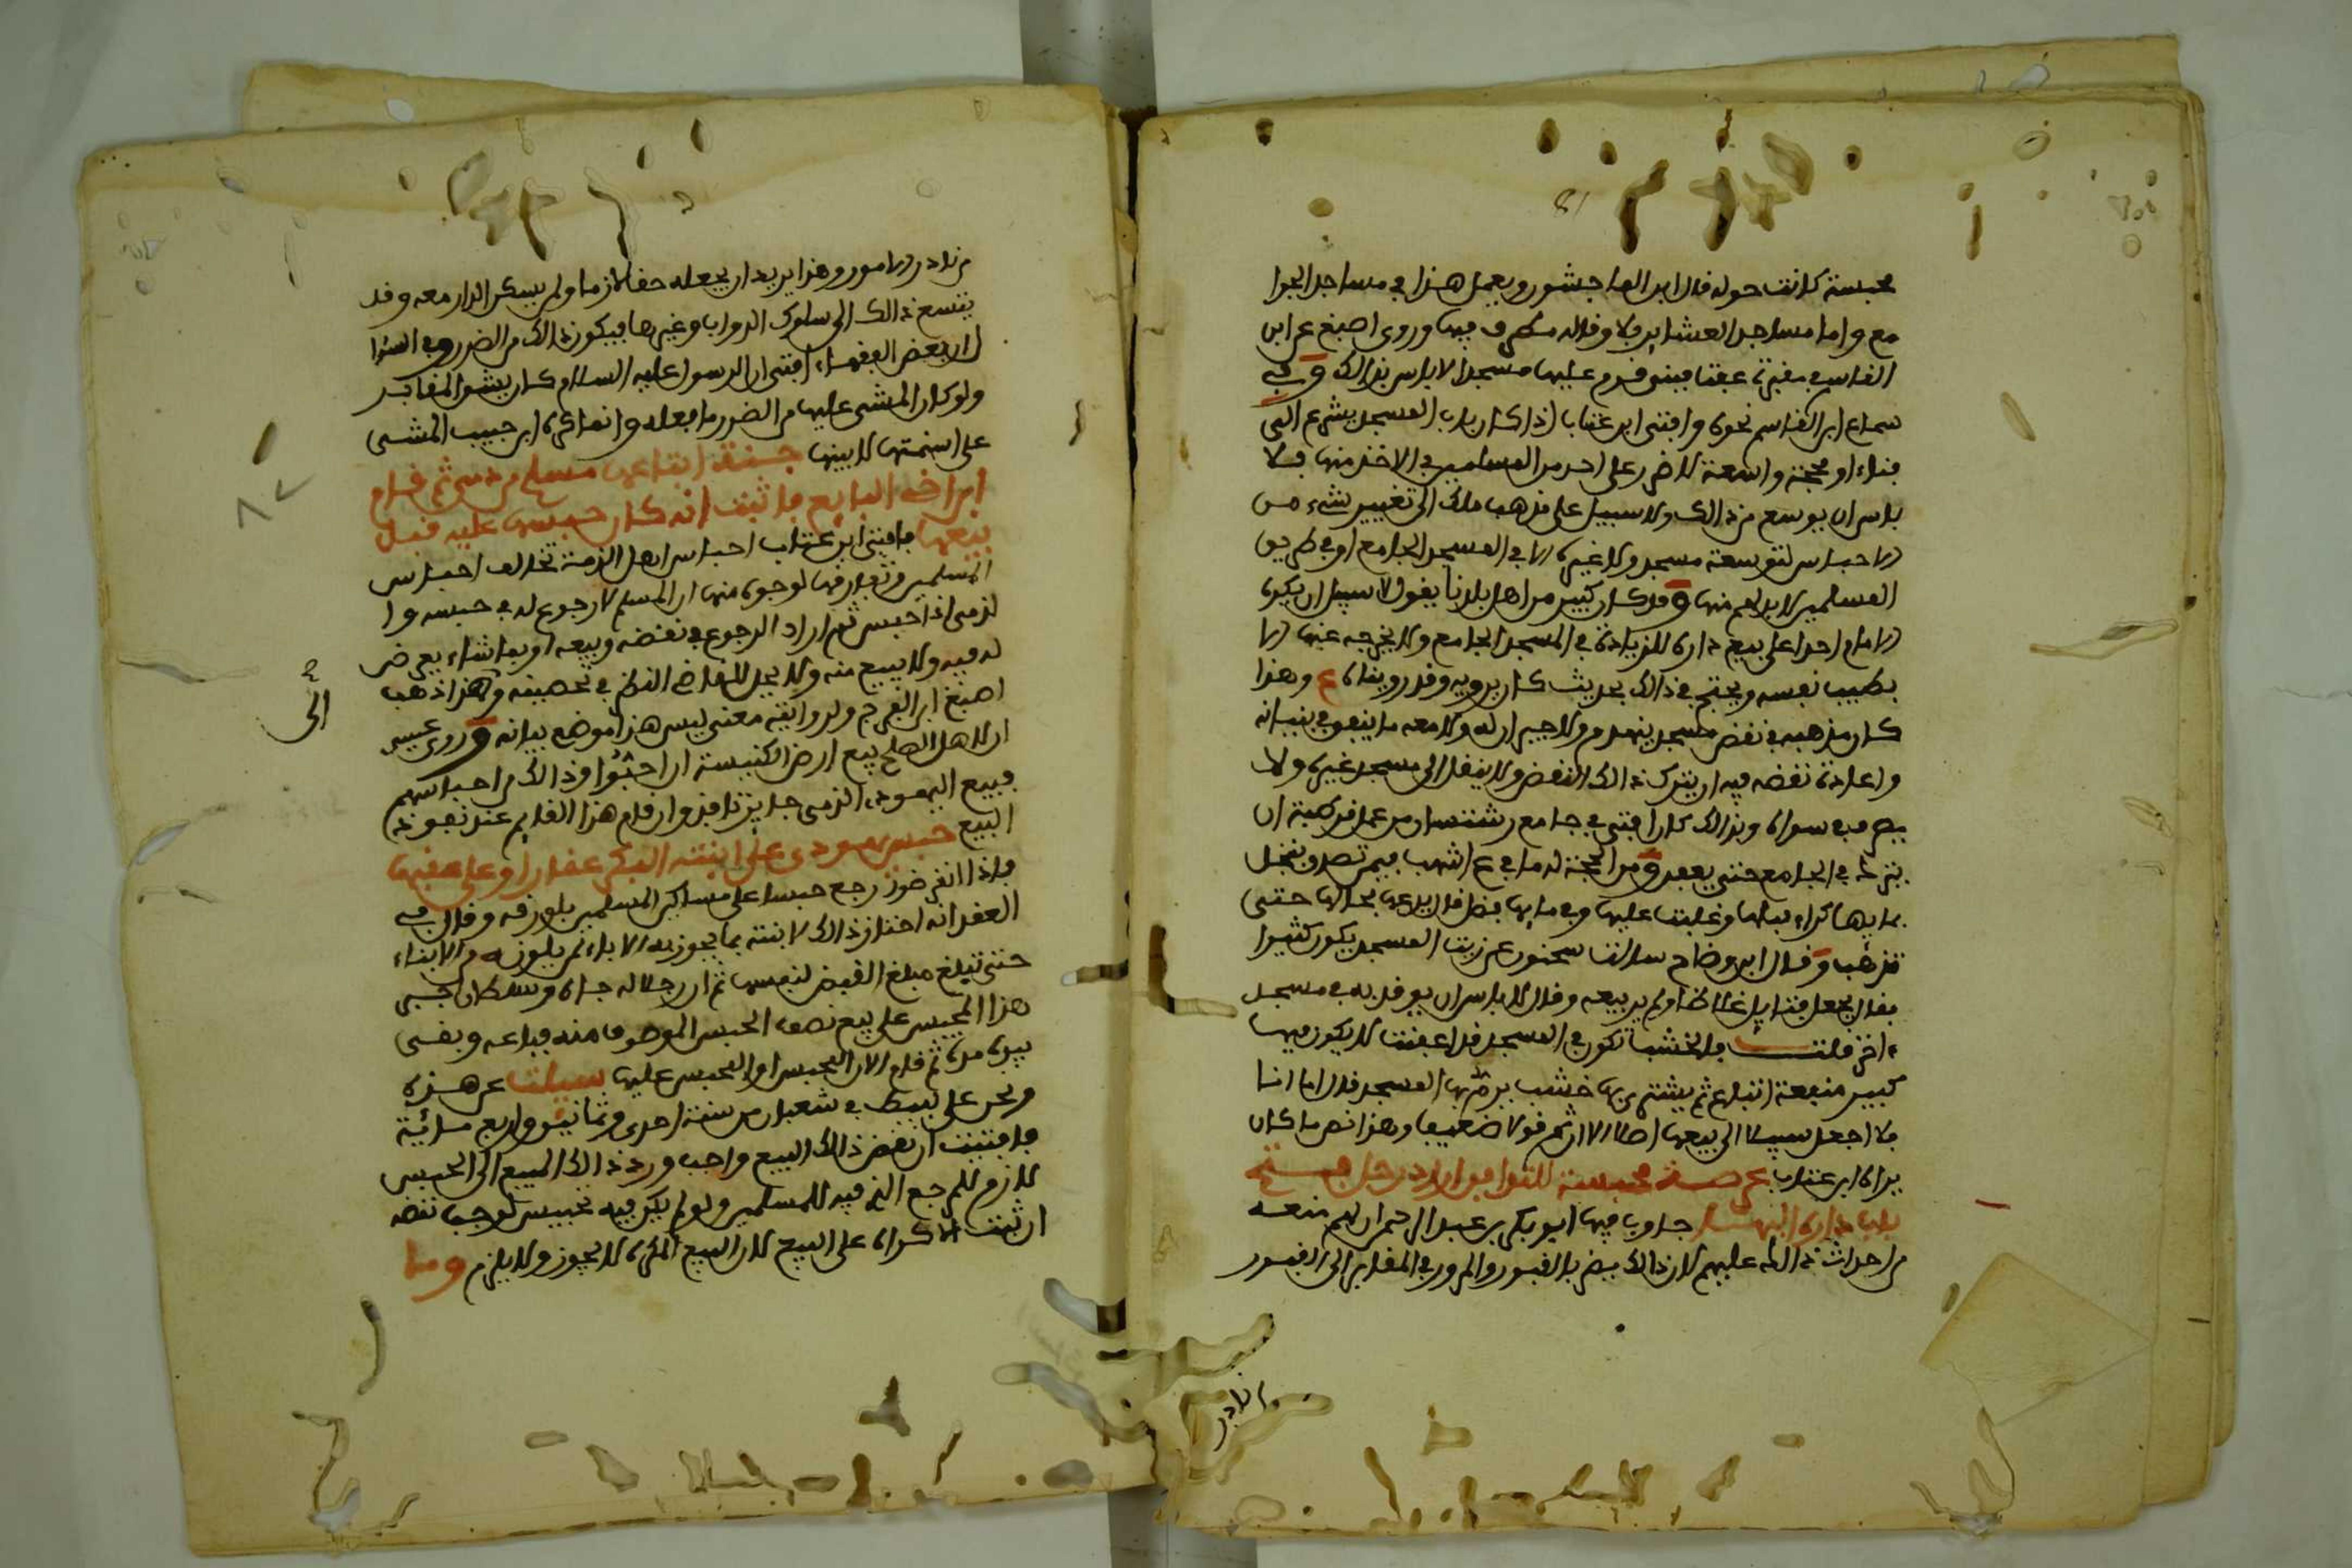 محبسة كانت حوله قال ابن الماجشون ويعمل هذا في مساجد الجوا
مع واما مساجد العشاير فلا وقاله مطرف فيها وروى اصبغ عن ابن
القاسم في مقبرة عفت فبنى قوم عليها مسجدا لا باس بذالك وفي
سماع ابن القاسم نحوه وافتى ابن عتاب اذا كان باب المسجد يشرع الى
فناء او محجة واسعة لا ضرر على احد من المسلمين في الاخذ منها فلا
باس ان يوسع من ذالك ولا سبيل على مذهب ملك الى تغيير شيء من
الاحباس لتوسعة مسجد ولا غيره الا في المسجد الجامع او في طريق
المسلمين لا بد لهم منها وقد كان كبير من اهل بلدنا يقول لا سبيل ان يكره
الامام احدا على بيع داره للزيادة في المسجد الجامع ولا يخرجه عنها الا
بطيب نفسه ويحتج في ذالك بحديث كان يرويه وقد رويناه ع وهذا
كان مذهبه في نقض مسجد ينهدم ولا جيران له ولا معه ما ينفق في بنيانه
واعادة نقضه فيه ان يترك ذالك النقض ولا ينقل الى مسجد غيره ولا
يصرف في سواه وبذالك كان افتى في جامع شنتسار من عمل قرطبة ان
يترك في الجامع حتى يعفو ومن الحجة له ما في ع اشهب فيمن تصدق بنخل
بمايها كراء بيابها وغلبت عليها وفي مايها فضل قال يدعها بحالها حتى
تذهب وقال ابن وضاح سالت سحنون عن زيت المسجد يكون كثيرا
فقال يجعل فتايل غلاظا ولم ير بيعه وقال لا باس ان يوقد به في مسجد
ءاخر قلت فالخشب تكون في المسجد قد عفنت لا يكون فيها
كبير منفعة اتباع ثم يشترى بها خشب يرم بها المسجد قال اما انا
فلا اجعل سبيلا الى بيعها اصلا الا ان ثم قولا ضعيفا وهذا نص ما كان
يراه ابن عتاب عرصة محبسة للتوافق اراد رجل فتح
باب داره اليها جاوب فيها ابو بكر بن عبد الرحمن ان لهم منعه
من احداث ذالك عليهم لان ذالك يضر بالقبور والمرور في المقابر الى القبور
نادر
من نادر الامور وهذا يريد ان يجعله حقا لازما ولم يسكن الدار معه وقد
يتسع ذالك الى سلوك الدواب وغيرها فيكون ذالك من الضرر وفي السؤا
ل ان بعض الفقهاء افتى ان الرسول عليه السلام كان يشق المقابر
ولو كان المشي عليها من الضرر ما فعله وانما كره ابن حبيب المشي
على اسنمتها لا بينها جنة ابتاعها مسلم من ذمي ثم قام
ابن اخ البايع فاثبت انه كان حبسها عليه قبل
بيعها فافتى ابن عتاب احباس اهل الذمة تخالف احباس
المسلمين وتفارقها لوجوه منها ان المسلم لا رجوع له في حبسه وا
لذمي اذا حبس ثم اراد الرجوع في نقضه وبيعه او بما شاء يعرض
له فيه ولا يبيع منه ولا يحل للقاضي النظر في تحصينه والى هذا ذهب
اصبغ ابن الفرج ولروايته معنى ليس هذا موضع بيانه وروى عيسى
ان لاهل الصلح بيع ارض الكنيسة ان احبوا وذالك من احباسهم
فبيع اليهودي الذمي جايز نافذ وان قام هذا القايم عند نفوذ
البيع حبس يهودي على ابنته البكر عقارا وعلى عقبها
فاذا انقرضوا رجع حبسا على مساكين المسلمين بلورقه وقال في
العقد انه احتاز ذالك لابنته بما يجوز به الاباء لم يلون من الابناء
حتى تبلغ مبلغ القبض لنفسها ثم ان رجلا له جاه وسلطان جبر
هذا المحبس على بيع نصف الحبس الموصوف منه فباعه وبقى
بيده مدة ثم قام الان المحبس او المحبس عليها سيلت عن هذه
ونحن على لييط في شعبان من سنة احدى وثمانين واربع ماية
فافتيت ان نقض ذالك البيع واجب ورد ذالك المبيع الى الحبس
لازم للمرجع الذي فيه للمسلمين ولو لم يكن فيه تحبيس لوجب نقضه
ان ثبت الاكراه على البيع لان البيع المكره لا يجوز ولا يلزم وما
الى
صح